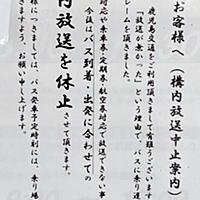 お客様へ（構内放送中止案内）
鹿児島交通をご利用頂きまして有難うございます
放送が無かった」という理由で、バスに乗り遅
レームを頂きました。
対応や乗車券・定期券・航空券対応で放送できない事
今後はバス到着・出発に合わせての
内放送を休止させて頂きます。
様につきましては、バス発車予定時刻には、乗り場
きますよう、お願い申し上げます。